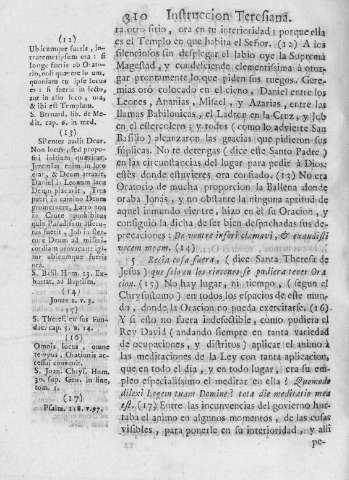 310 Instruccion Teresiana.
ra otro sitio, ora en tu interioridad: porque ella
es el Templo en que habita el Señor. (12) A los
silenciosos sin desplegar el labio oye la Suprema
Magestad, y condesciende clementissima à otor-
gar prontamente lo que piden sus ruegos. Gere-
mias oró colocado en el cieno, Daniel entre los
Leones, Ananias, Misael, y Azarias, entre las
llamas Babilonicas, el Ladron en la Cruz, y Job
en el estercolero; y todos (como lo advierte San
Basilio) alcanzaron las gracias que pidieron sus
súplicas. No te detengas (dice este Santo Padre)
en las circunstancias del lugar para pedir à Dios:
estès donde estuvieres ora confiado. (13) No era
Oratorio de mucha proporcion la Ballena donde
oraba Jonás, y no obstante la ninguna aptitud de
aquel inmundo vientre, hizo en él su Oracion, y
consiguió la dicha de ser bien despachadas sus de-
precaciones: De ventre inferi clamavi, & exaudisti
vocem meam. (14)
5 Recia cosa fuera, (dice Santa Theresa de
Jesus) que solo en los rincones se pudiera tener Ora-
cion. (15) No hay lugar, ni tiempo, (segun el
Chrysostomo) en todos los espacios de este mun-
do, donde la Oracion no pueda exercitarse. (16)
Y si esto no fuera indefectible, cómo pudiera el
Rey David (andando siempre en tanta variedad
de ocupaciones, y distritos) aplicar el animo à
las meditaciones de la Ley con tanta aplicacion,
que en todo el dia, y en todo lugar, era su em-
pleo especialissimo el meditar en ella? Quomodo
dilexi Legem tuam Domine? tota die meditatio mea
est. (17) Entre las incunvencias del governo hur-
taba el animo en algunos momentos, de las cosas
visibles, para ponerle en su interioridad, y alli
pe-
(12)
Ubicumque fueris, in-
trate metipsum ora: si
longe fueris ab Orato-
rio, noli quærere locum,
quoniam tu ipse locus
es: si fueris in lecto,
aut in alio loco, ora,
& ibi est Templum.
S. Bernard. lib. de Me-
dit. cap. 6. in med.
(13)
Silenter audit Deus.
Non locus, sed
S. Basil. Hom.
(14)
Jonæ 2. v. 3.
(15)
S. Theres. en sus Fun-
dac. cap. 5. n. 14.
(16)
Omnis locus, omne
tempus, Orationis ac-
cessui convenit.
S. Joan. Chrys. Hom.
30. sup. Gen. in fine,
tom. 1.
(17)
Psalm. 118. v. 97.